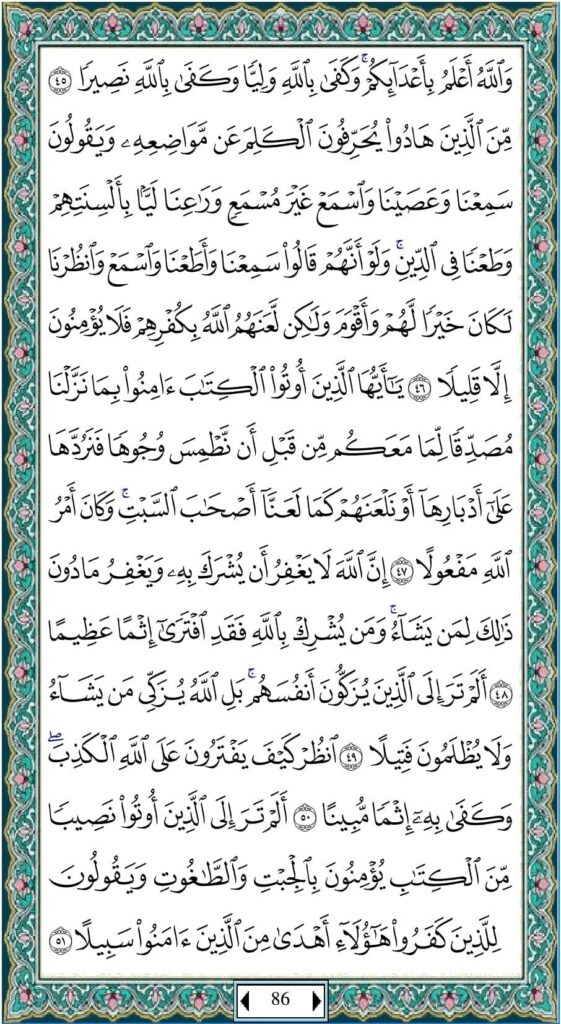 وَٱللَّهُ أَعۡلَمُ بِأَعۡدَآئِكُمۡۚ وَكَفَىٰ بِٱللَّهِ وَلِيّٗا وَكَفَىٰ بِٱللَّهِ نَصِيرٗا ٤٥
مِّنَ ٱلَّذِينَ هَادُواْ يُحَرِّفُونَ ٱلۡكَلِمَ عَن مَّوَاضِعِهِۦ وَيَقُولُونَ
سَمِعۡنَا وَعَصَيۡنَا وَٱسۡمَعۡ غَيۡرَ مُسۡمَعٖ وَرَٰعِنَا لَيَّۢا بِأَلۡسِنَتِهِمۡ
وَطَعۡنٗا فِي ٱلدِّينِۚ وَلَوۡ أَنَّهُمۡ قَالُواْ سَمِعۡنَا وَأَطَعۡنَا وَٱسۡمَعۡ وَٱنظُرۡنَا
لَكَانَ خَيۡرٗا لَّهُمۡ وَأَقۡوَمَ وَلَٰكِن لَّعَنَهُمُ ٱللَّهُ بِكُفۡرِهِمۡ فَلَا يُؤۡمِنُونَ
إِلَّا قَلِيلٗا ٤٦ يَٰٓأَيُّهَا ٱلَّذِينَ أُوتُواْ ٱلۡكِتَٰبَ ءَامِنُواْ بِمَا نَزَّلۡنَا
مُصَدِّقٗا لِّمَا مَعَكُم مِّن قَبۡلِ أَن نَّطۡمِسَ وُجُوهٗا فَنَرُدَّهَا
عَلَىٰٓ أَدۡبَارِهَآ أَوۡ نَلۡعَنَهُمۡ كَمَا لَعَنَّآ أَصۡحَٰبَ ٱلسَّبۡتِۚ وَكَانَ أَمۡرُ
ٱللَّهِ مَفۡعُولًا ٤٧ إِنَّ ٱللَّهَ لَا يَغۡفِرُ أَن يُشۡرَكَ بِهِۦ وَيَغۡفِرُ مَا دُونَ
ذَٰلِكَ لِمَن يَشَآءُۚ وَمَن يُشۡرِكۡ بِٱللَّهِ فَقَدِ ٱفۡتَرَىٰٓ إِثۡمًا عَظِيمًا
٤٨ أَلَمۡ تَرَ إِلَى ٱلَّذِينَ يُزَكُّونَ أَنفُسَهُمۚ بَلِ ٱللَّهُ يُزَكِّي مَن يَشَآءُ
وَلَا يُظۡلَمُونَ فَتِيلًا ٤٩ ٱنظُرۡ كَيۡفَ يَفۡتَرُونَ عَلَى ٱللَّهِ ٱلۡكَذِبَۖ
وَكَفَىٰ بِهِۦٓ إِثۡمٗا مُّبِينًا ٥٠ أَلَمۡ تَرَ إِلَى ٱلَّذِينَ أُوتُواْ نَصِيبٗا
مِّنَ ٱلۡكِتَٰبِ يُؤۡمِنُونَ بِٱلۡجِبۡتِ وَٱلطَّٰغُوتِ وَيَقُولُونَ
لِلَّذِينَ كَفَرُواْ هَٰٓؤُلَآءِ أَهۡدَىٰ مِنَ ٱلَّذِينَ ءَامَنُواْ سَبِيلًا ٥١
86